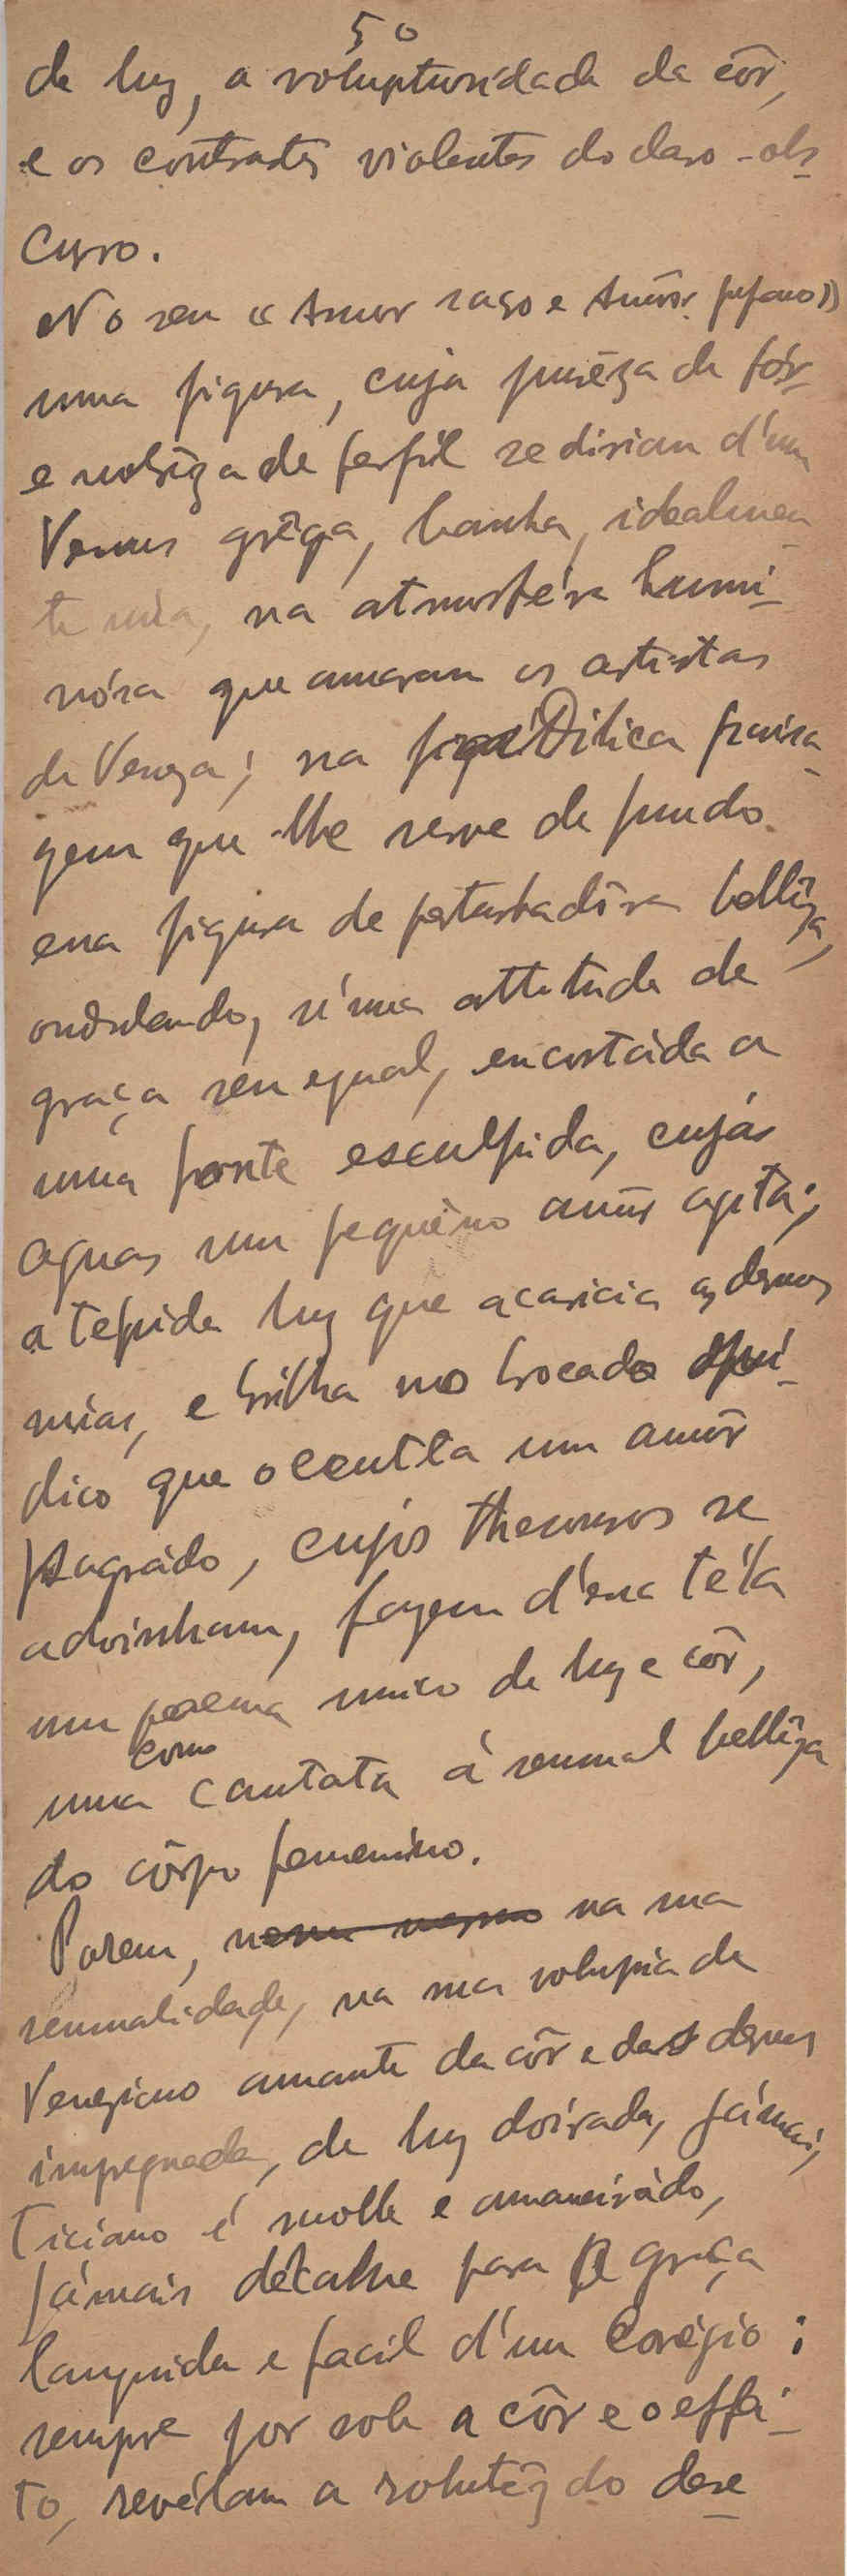 50
de luz, a voluptuosidade da côr,
e os contrastes violentos do claro-obs
curo.
No seu « Amor sacro e Amôr profano»
uma figura, cuja purêza de fór-
e nobrêza de perfil se diriam d'uma
Venus grêga, banha, idealmen
te núa, na atmosféra lumi-
nósa que amaram os artistas
de Veneza; na idilica paisa-
gem que lhe serve de fundo
ena figura de perturbadôra bellêza,
ondulando, n'uma attitude de
graça sem egual, encostáda a
uma fonte esculpida, cujás
aguas um pequêno amôr agita;
a tepida luz que acaricia as carnes
núas, e brilha no brocado
dico que occulta um amôr
sagrádo, cujos thesouros se
advinham, fazem d'ena téla
um poema unico de luz e côr,
como
uma cantata á sensual bellêza
do côrpo femenino.
Porem, nem mesmo na sua
sensualidade, na sua volupia de
Veneziano amante da côr e das carnes
impregnada, de luz doirada, jámais,
Ticiano é molle e amaneirádo,
jámais decahe para a graça
languida e facil d'um Corégio;
sempre por sob a côr e o effei-
to, revélam a solutêz do dese